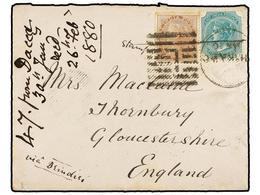 4.7. from Dacca
30th Jany
Recd
26 Feb
1880
Mrs Maclaine
Thornbury
Gloucestershire
England
via Brindisi